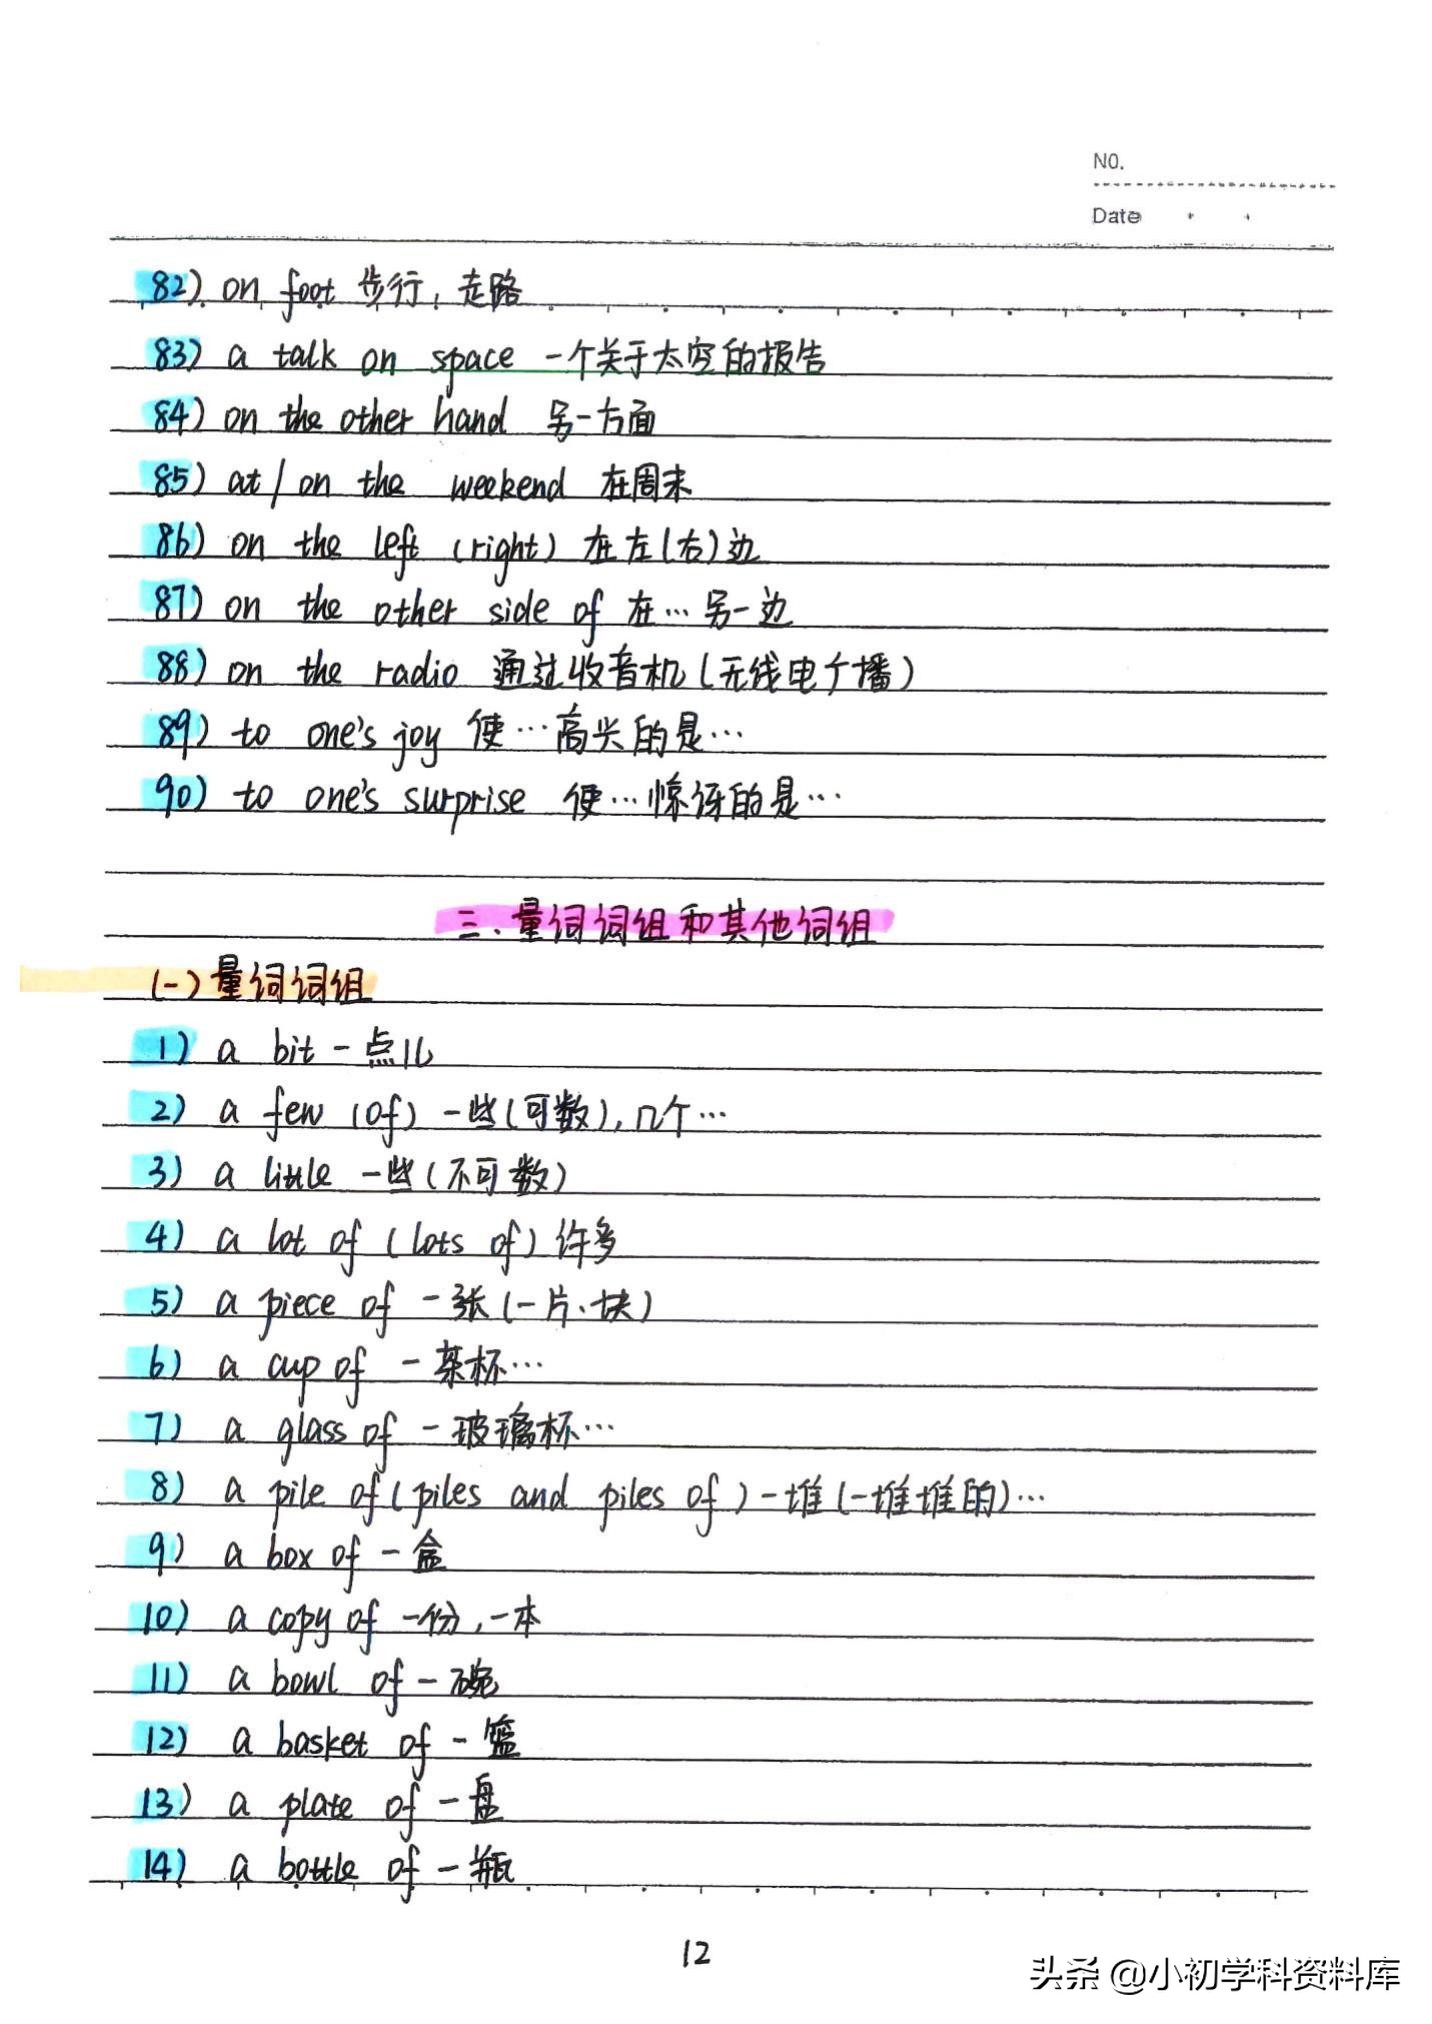 NO.
Date
82) on foot 步行，走路
83) a talk on space 一个关于太空的报告
84) on the other hand 另一方面
85) at/on the weekend 在周末
86) on the left (right) 在左(右)边
87) on the other side of 在…另一边
88) on the radio 通过收音机(无线电广播)
89) to one's joy 使…高兴的是…
90) to one's surprise 使…惊讶的是…
三、量词词组和其他词组
(一)量词词组
1) a bit 一点儿
2) a few (of) 一些(可数),几个…
3) a little 一些(不可数)
4) a lot of (lots of) 许多
5) a piece of 一张(一片、块)
6) a cup of 一茶杯…
7) a glass of 一玻璃杯…
8) a pile of (piles and piles of) 一堆(一堆堆的)…
9) a box of 一盒
10) a copy of 一份,一本
11) a bowl of 一碗
12) a basket of 一篮
13) a plate of 一盘
14) a bottle of 一瓶
12
头条 @小初学科资料库